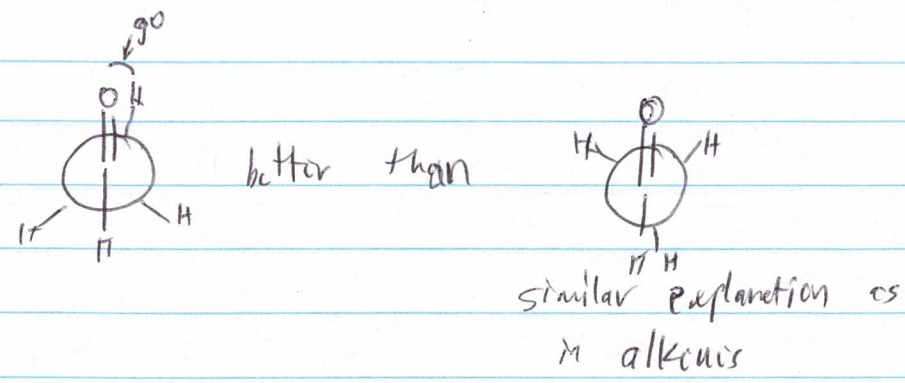 9°
O H
H H
H
better than
O
H H
H H
similar explanation as
in alkenes